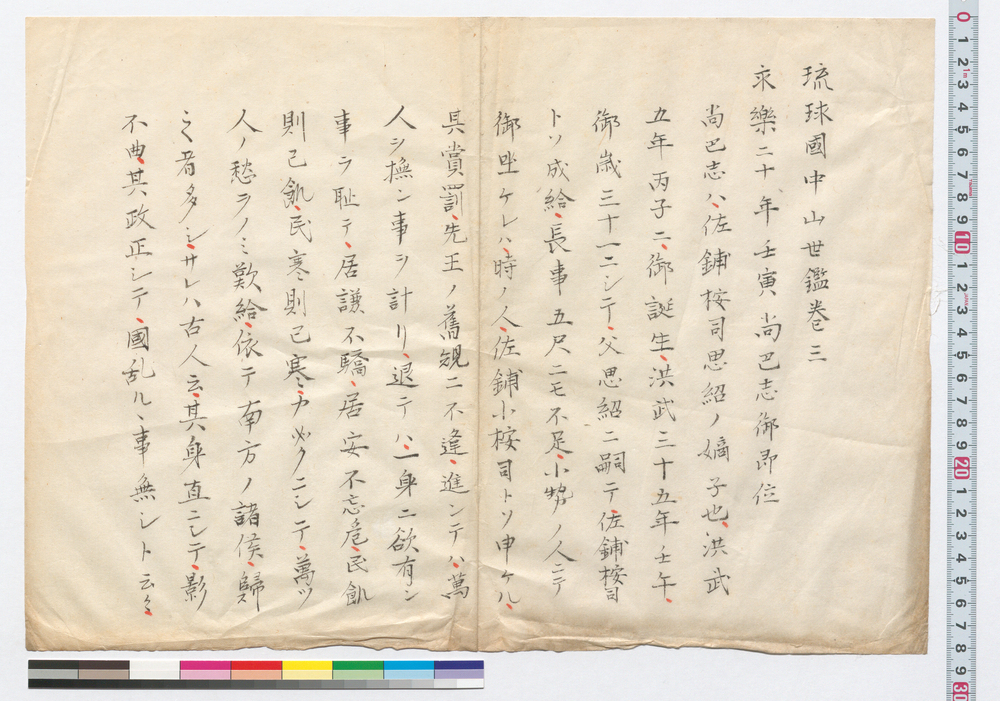 琉球國中山世鑑卷三
永樂二十年壬寅尚巴志御即位
尚巴志ハ、佐鋪桉司思紹ノ嫡子也、洪武
五年丙子ニ、御誕生、洪武三十五年壬午、
御歳三十一ニシテ、父思紹ニ嗣テ、佐鋪桉司
トソ成給、長事五尺ニモ不足、小勢ノ人ニテ
御坐ケレハ、時ノ人、佐鋪小桉司トソ申ケル、
其賞罰、先王ノ舊規ニ不違、進ンテハ、萬
人ヲ撫ン事ヲ計リ、退テハ、一身ニ欲有ン
事ヲ耻テ、居謙不驕、居安不忘危、民飢
則己飢、民寒則己寒、カ必クニシテ、萬ツ
人ノ愁ヲノミ歎給、依テ南方ノ諸侯、歸
之者多シ、サレハ古人云、其身直ニシテ、影
不曲、其政正シテ、國乱ル、事無シト云々、